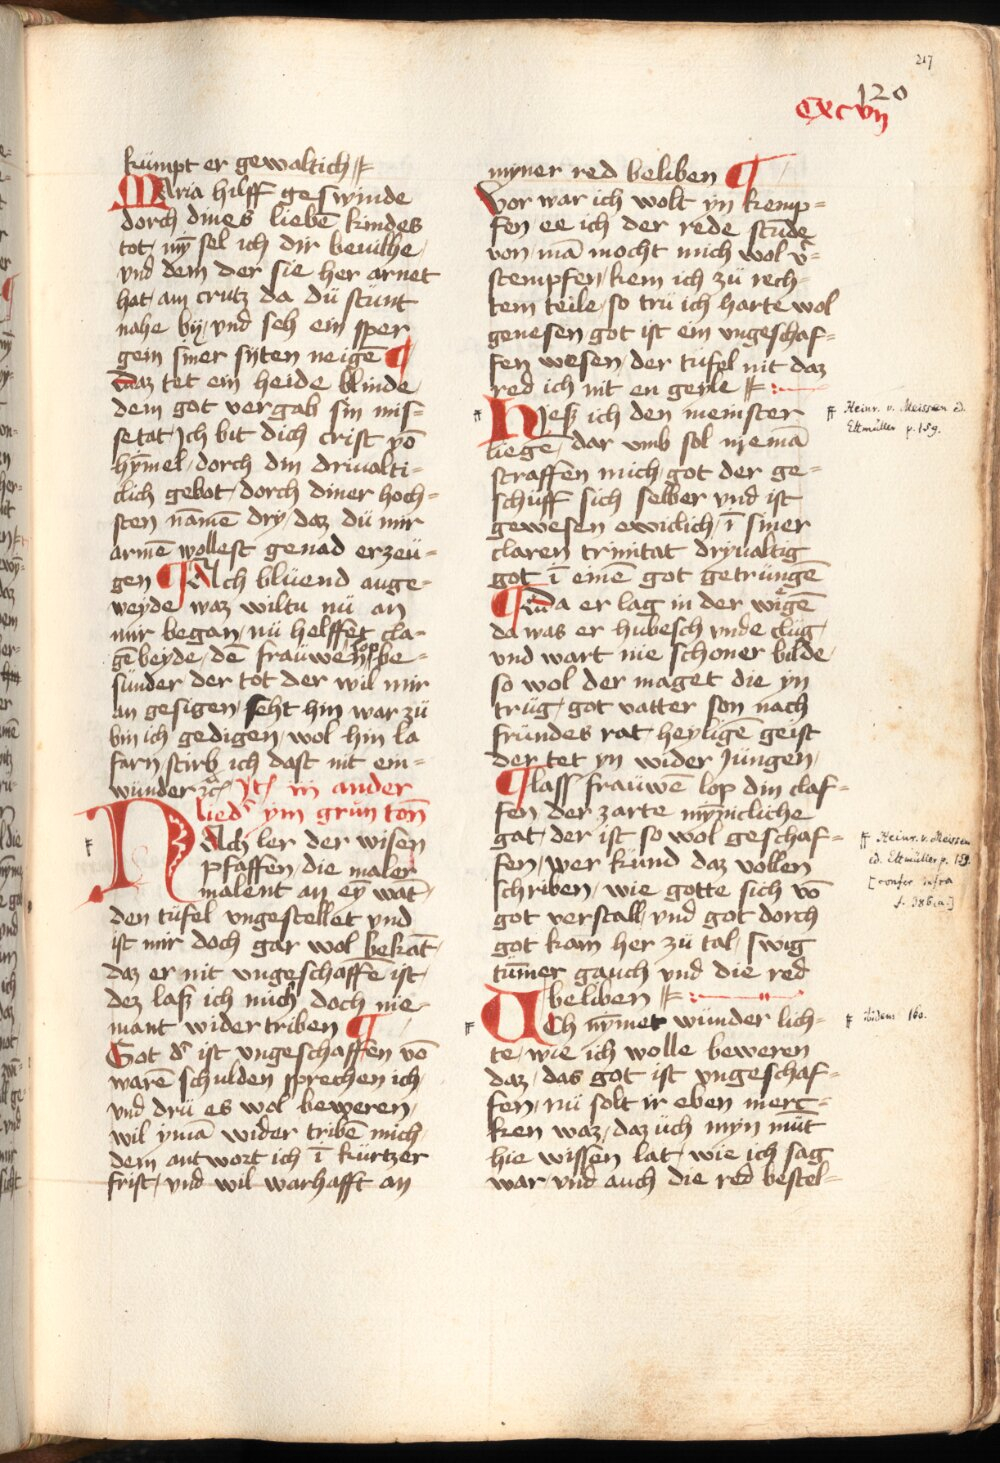 217
120
cxcvij
kümpt er gewaltich
MAria hilff geswinde
dorch dines liebē kindes
tot / mȳ sel ich dir beuilhe /
vnd dem der sie her arnet
hat / am crutz da dü stünt
nahe bÿ / vnd seh ein sper
gein siner sÿten neigē ¶
daz tet ein heide blinde /
dem got vergab sin mis=
setat / Ich bit dich crist vō
hȳmel / dorch din driualti=
clich gebot / dorch diner hoch=
sten nāmē dry / daz dü mir
armē wollest genad erzeü=
gen ¶ Ach blüend auge=
weyde / waz wiltu nü an
mir began / nü helffet cla=
gē beyde / dē fraüwē be=
sünder der tot der wil mir
an gesigen / seht hin war zü
bin ich gedigen / wol hin la
farn / stirb ich dast nit em=
wünder
ein ander
lied ym grün ton
NAch ler der wisen
pfaffen / die maler
malent an eȳ wāt /
den tüfel vngestellet vnd
ist mir doch gar wol bekāt /
daz er nit vngeschaffē ist /
dez laß ich mich doch nie=
mant wider triben ¶
Got d' ist vngeschaffen vō
warē schulden sprechen ich /
vnd drü es wol beweren /
wil ymā wider tribē mich /
dem antwort ich ī kürtzer
frist / vnd wil warhafft an
myner red beliben ¶
vor war ich wolt yn kemp=
fen / ee ich der rede stūde
von / mā mocht mich wol v'=
stempfen / kem ich zü rech=
tem teile / so trü ich harte wol
genesen got ist ein vngeschaf=
fen wesen / der tufel nit daz
red ich nit en geyle
HIeß ich den meinster
liegē / dar vmb sol niemā
straffen mich / got der ge=
schüff sich selber vnd ist
gewesen ewiclich / ī siner
claren trinitat dryualtig
got ī einē got getrüngē
¶ Da er lag in der wigē
da was er hubesch vnde clüg /
vnd wart nie schoner bilde /
so wol der maget die yn
trüg / got vatter son nach
fründes rat heyligē geist
der tet yn wider Jüngen /
¶ lass fraüwē lop din claf=
fen der zarte mȳnicliche
gat / der ist so wol geschaf=
fen / wer künd daz vollen
schriben / wie gotte sich vō
got verstall / vnd got dorch
got kam her zü tal / swig
tūmer gauch vnd die red
beliben
ACh nȳmet wünder lich=
te / wie ich wolle beweren
daz / das got ist vngeschaf=
fen / nü solt ir eben merc=
ken waz / daz üch myn müt
hie wissen lat / wie ich sag
war / vnd auch die red bestel=
Heinr. v. Meissen ed.
Ettmüller p. 159.
Heinr. v. Meissen
ed. Ettmüller p. 159.
[confer infra
ibidem 160.